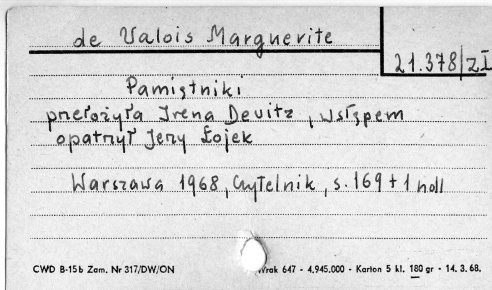 de Valois Marguerite
21.378/ZI
Pamiętniki
przełożyła Irena Dewitz, wstępem
opatrzył Jerzy Łojek
Warszawa 1968, Czytelnik, s. 169 + 1 ndll
CWD B-15b Zam. Nr 317/DW/ON
Wrak 647 - 4.945.000 - Karton 5 kl. 180 gr - 14. 3. 68.